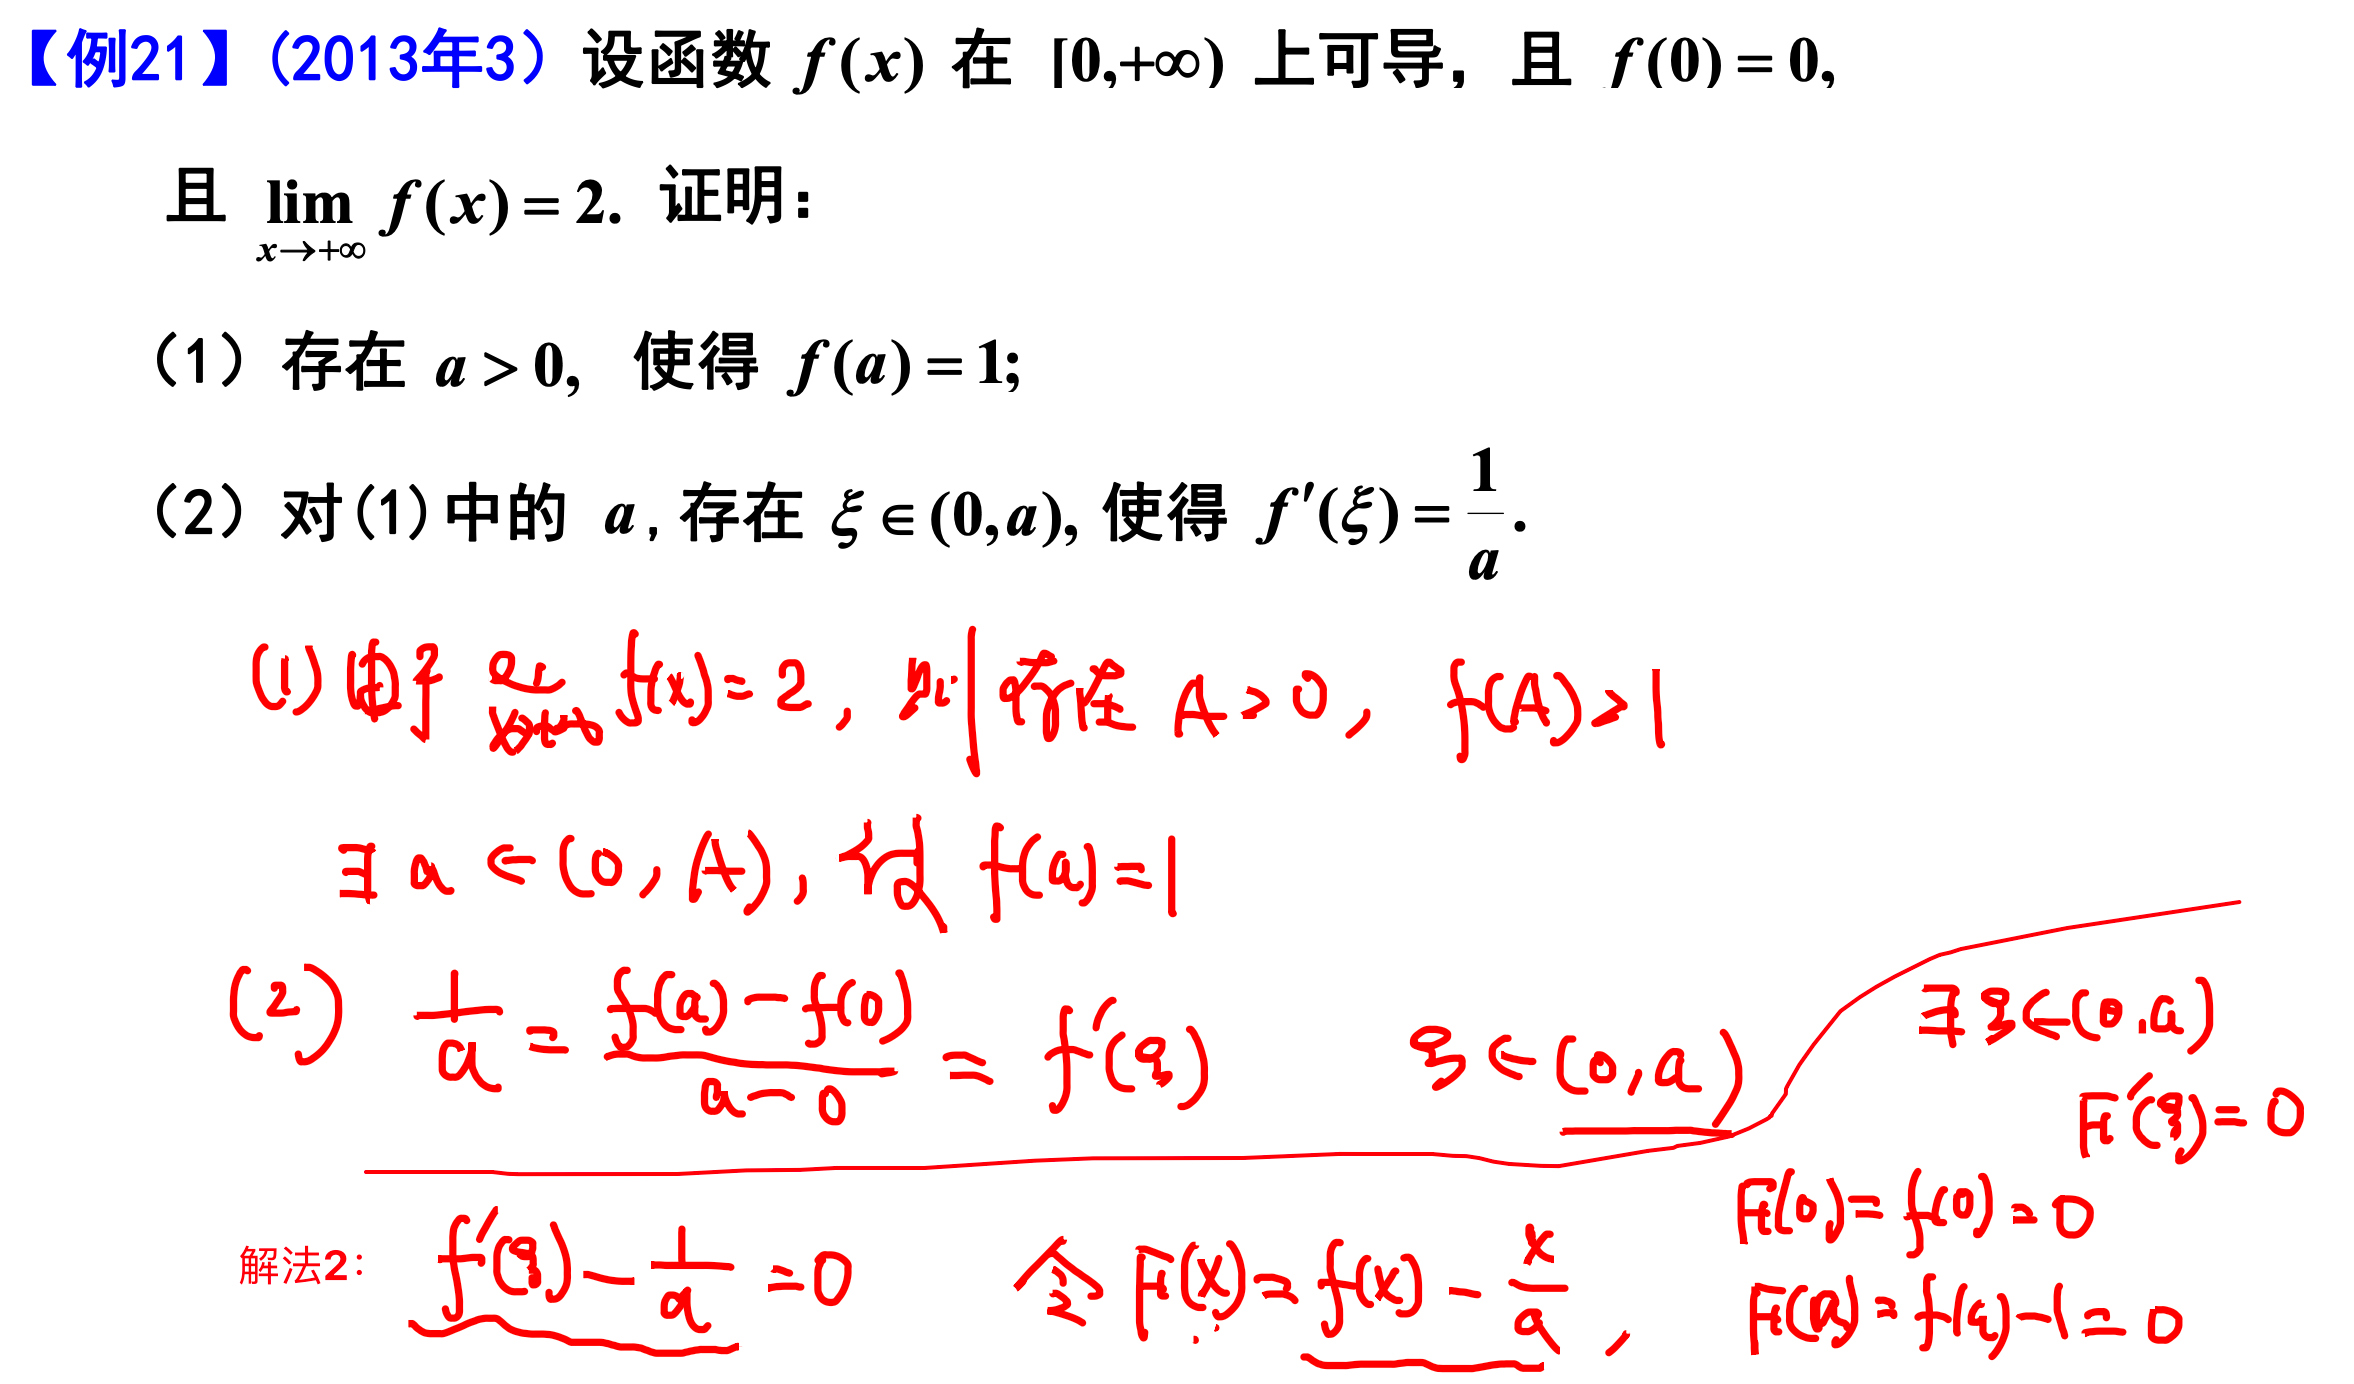 【例21】(2013年3) 设函数 f(x) 在 [0,+∞) 上可导, 且 f(0) = 0,
且 lim f(x) = 2. 证明:
x→+∞
(1) 存在 a > 0, 使得 f(a) = 1;
(2) 对(1)中的 a, 存在 ξ∈(0,a), 使得 f′(ξ) = 1/a.
(1) 由于 lim f(x) = 2, 则存在 A > 0, f(A) > 1
x→+∞
∃ a ∈ (0, A), 使 f(a) = 1
(2) 1/a = (f(a) − f(0))/(a − 0) = f′(ξ) ξ ∈ (0, a)
解法2: f′(ξ) − 1/a = 0 令 F(x) = f(x) − x/a,
F(0) = f(0) = 0
F(a) = f(a) − 1 = 0
∃ ξ ∈ (0, a)
F′(ξ) = 0